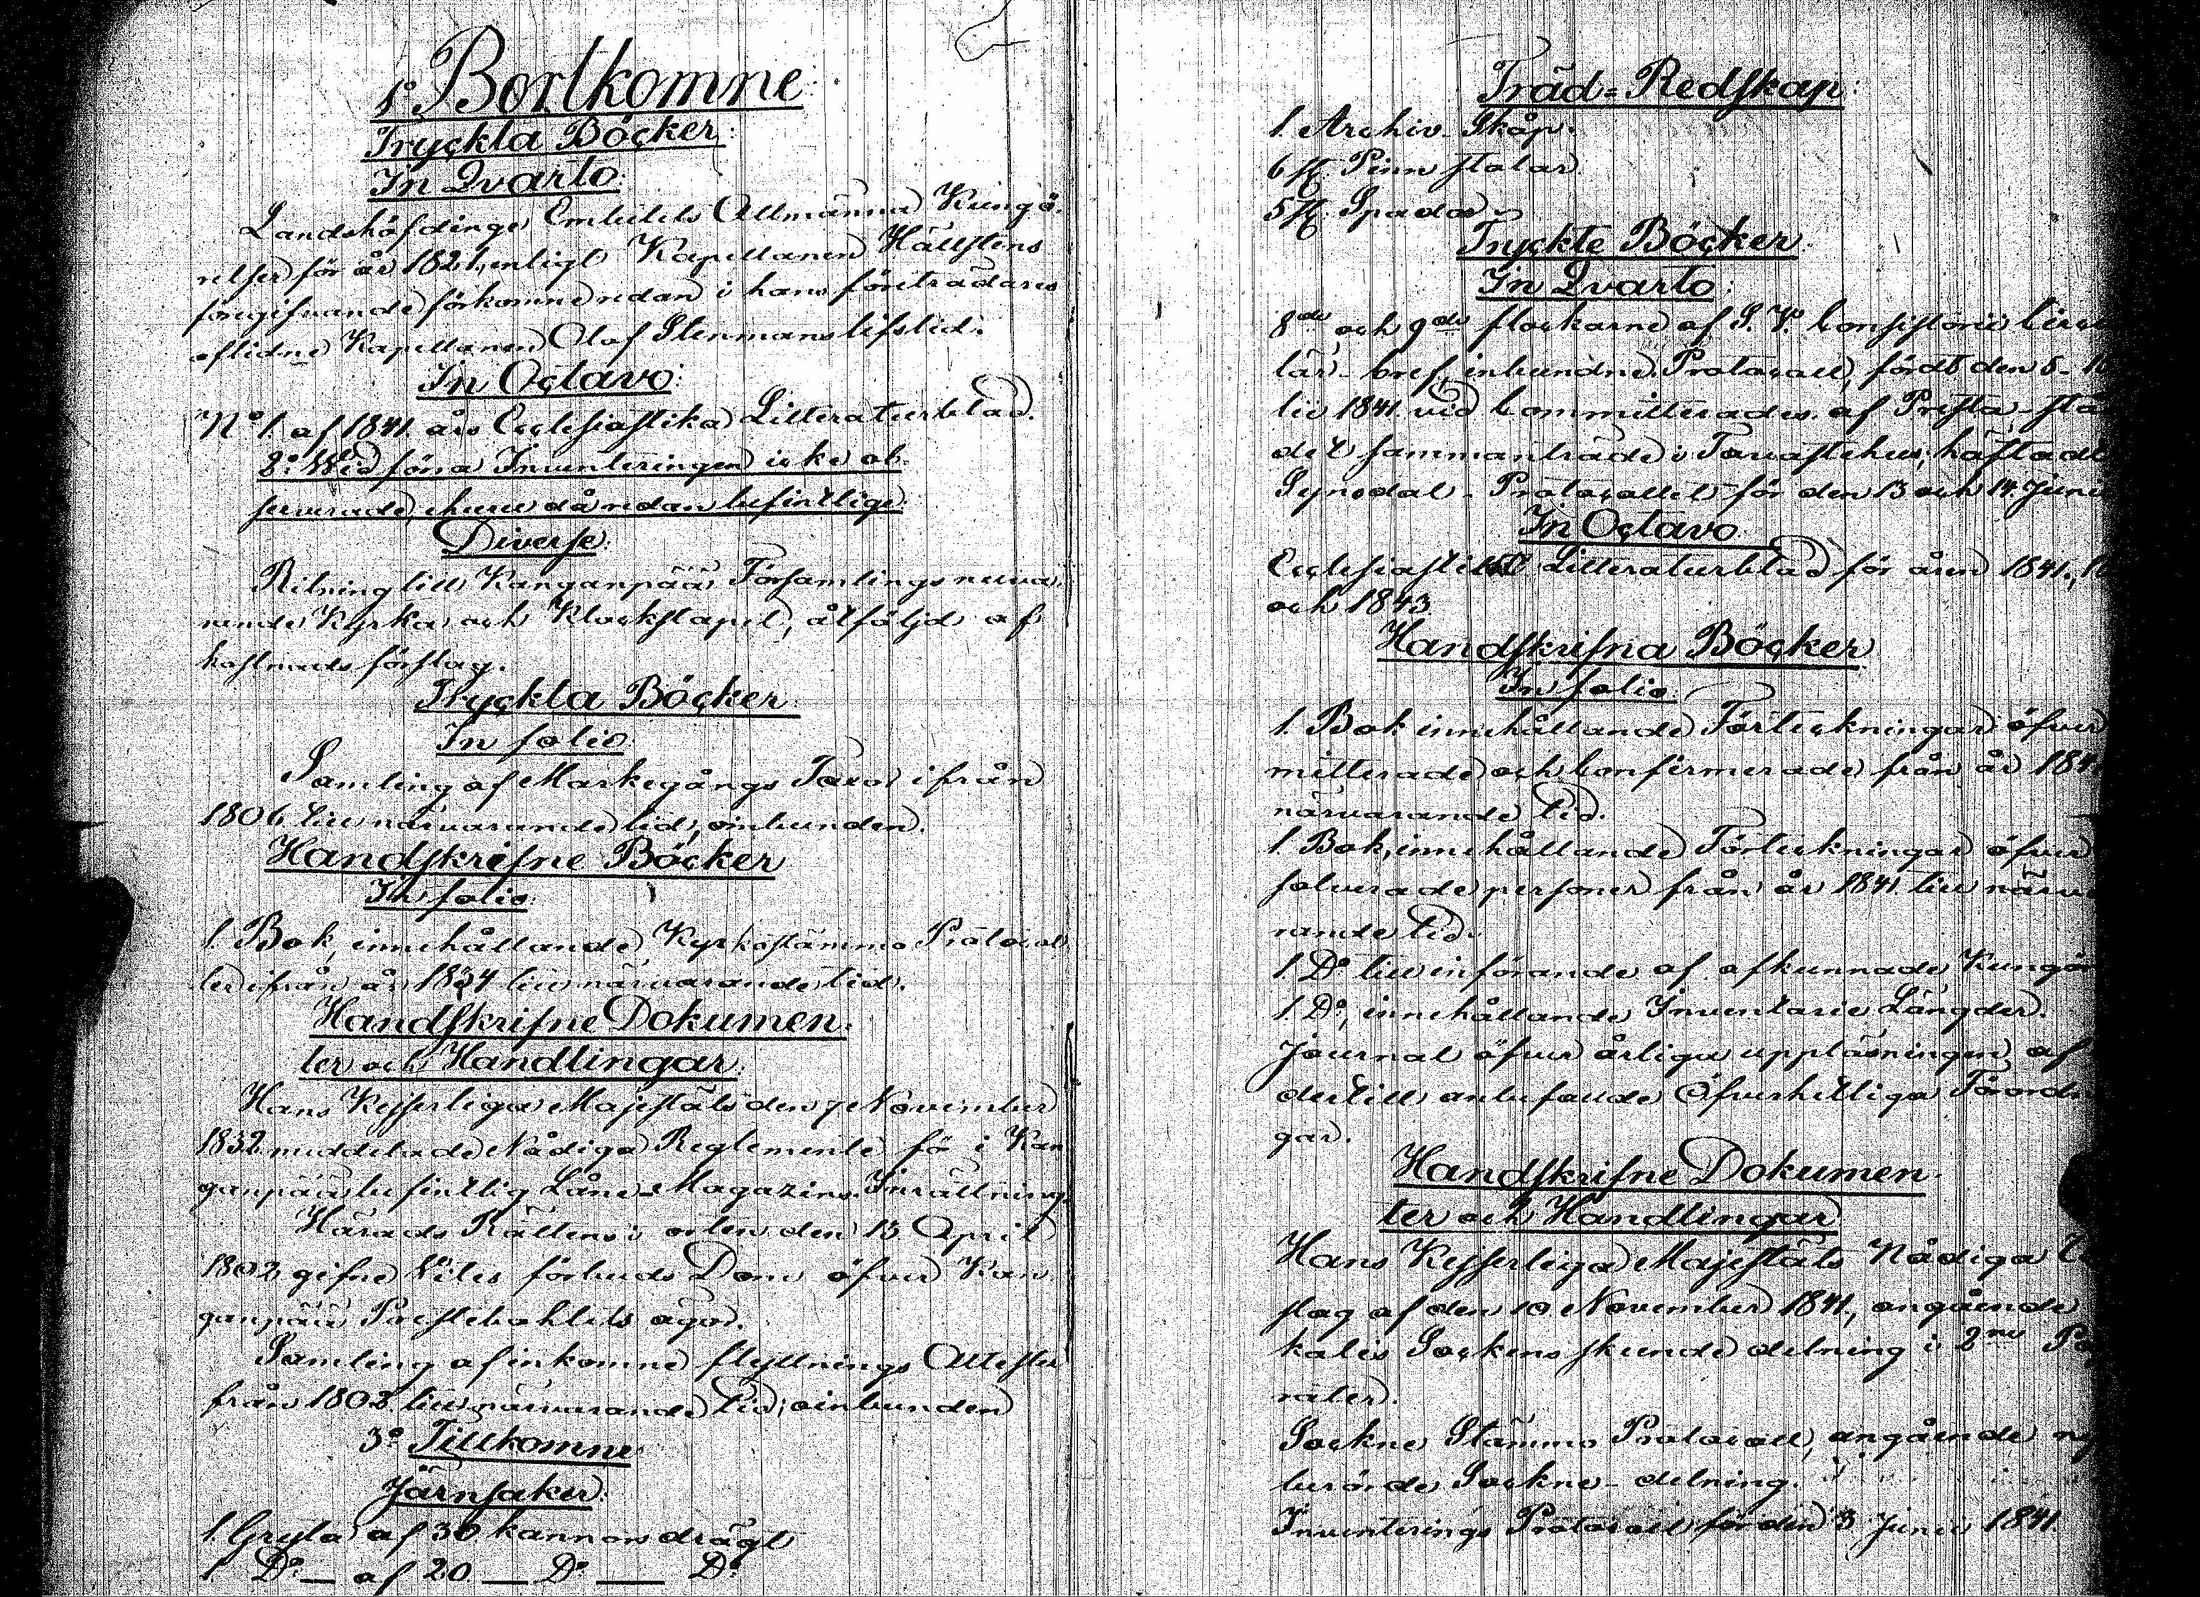 1º Bortkomne
Tryckta Böcker:
In Qvarto:
Landshöfdinge Embetets Allmänna Kungö-
relser för år 1821, enligt Kapellanen Hällstens
föregifvande förkomne redan i hans företrädares
aflidne Kapellanen Olof Stenmans lifstid.
In Octavo:
Nº 1. af 1841. års Ecclesiastika Litteraturblad.
2º Wid förra Inventeringen icke ob-
serverade, ehuru då redan befintlige:
Diverse:
Ritning till Kanganpää Församlings nuva-
rande Kyrka och Klockstapel, åtföljd af
kostnads förslag.
Tryckta Böcker:
In folio:
Samling af Markegångs Taxor ifrån
1806 till närvarande tid, oinbunden.
Handskrifne Böcker
In folio:
1. Bok, innehållande Kyrkostämmo Protocol-
ler ifrån år 1834 till närvarande tid.
Handskrifne Dokumen-
ter och Handlingar:
Hans Kejserliga Majestäts den 7 November
1832 meddelade Nådiga Reglemente för i Kan-
ganpää befintlig Låne-Magazins Inrättning.
Härads Rättens i orten den 13 April
1802 gifne Vites förbuds Dom öfver Kan-
ganpää Prestebohlets ägor.
Samling af inkomne flyttnings Attester
från 1802 till närvarande tid; oinbunden
3º Tillkomne
Järnsaker:
1. Gryta af 30 kannors drägt
1. Dº — af 20 — Dº — Dº
Träd-Redskap:
1. Archiv-Skåp.
6 st. Pinnstolar
5 st. Spador
Tryckte Böcker
In Qvarto:
8de och 9de flockarne af S. V. Consistorii Circu
lär-bref, inbundne. Protocoll, fördt den 5-
lii 1841 vid Committerades af Presta-stån
det sammanträde i Tavastehus, häftadt
Synodal-Protocollet för den 13 och 14. Junii
In Octavo
Ecclesiastikt Litteraturblad för åren 1841,
och 1843
Handskrifna Böcker
In folio:
1. Bok innehållande Förteckningar öfver
mitterade och Confirmerade från år 184
närvarande tid.
1. Bok, innehållande Förteckningar öfver
solverade personer från år 1841 till närva
rande tid.
1. Dº till införande af afkunnade Kungör
1. Dº, innehållande Inventarie Längder.
Journal öfver årliga uppläsningen af
dertill anbefallde Öfverhetliga Förord
gar.
Handskrifne Dokumen-
ter och Handlingar
Hans Kejserliga Majestäts Nådiga
slag af den 10 November 1841, angående
kalis Sockens skeende delning i 2ne Pa
rater.
Sockne Stämmo Protocoll, angående ny
berörde Sockne-delning.
Inventerings Protocoll för den 3 Junii 1841